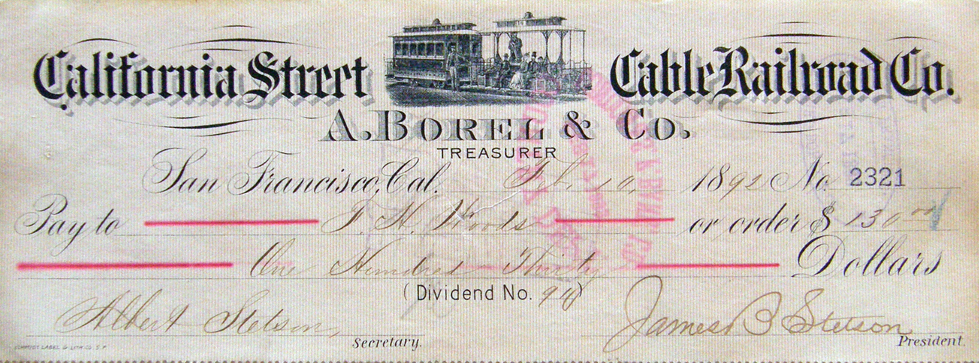 California Street Cable Railroad Co.
A. BOREL & Co.
TREASURER
San Francisco, Cal. Feb. 10, 1892 No. 2321
Pay to F. H. Woods or order $ 130.00
One Hundred Thirty Dollars
(Dividend No. 90)
Albert Stetson, Secretary.
James B Stetson President.